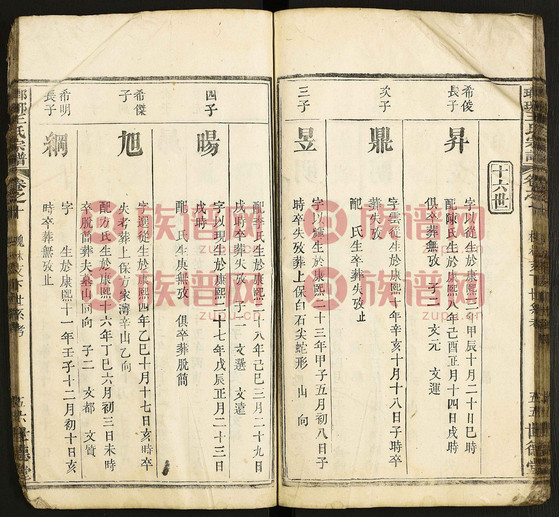 十六世
希俊
長子
昇
字 生於康熙三年甲辰十月二十二日戌時
配陳氏生於康熙八年己酉正月十四日戌時
俱卒葬無攷 子二 文元 文運
次子
鼎
字雲從生於康熙十年辛亥十月十八日子時卒
葬失攷
配 氏生卒葬失攷
三子
昱
字以 從生於康熙二十三年甲子五月初八日子
時卒失攷葬上保白石尖蛇形 山 向
配李氏生於康熙二十八年己巳三月二十九日
戌時卒葬失攷 子二 文選 文遠
四子
暘
字以現生於康熙二十七年戊辰正月二十三日
戌時
配 氏生庚無攷 俱卒葬脫簡
希傑
子
旭
字 從生於康熙四年乙巳十月十七日亥時卒
失考葬上保方家灣辛山乙向
配方氏生於康熙十六年丁巳六月初三日未時
卒脫簡葬夫墓山同向 子二 文郁 文質
希明
長子
綱
字 生於康熙十一年壬子十二月初十日亥
時卒葬無攷止
族谱网
zupu.cn